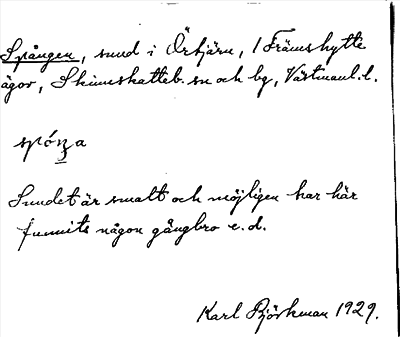 Spången, sund i Örtjärn, i Främshytte
ägor, Skinnskatteb. sn och bg, Västmanl. l.
spóŋa
Sundet är smalt och möjligen har här
funnits någon gångbro e.d.
Karl Björkman 1929.